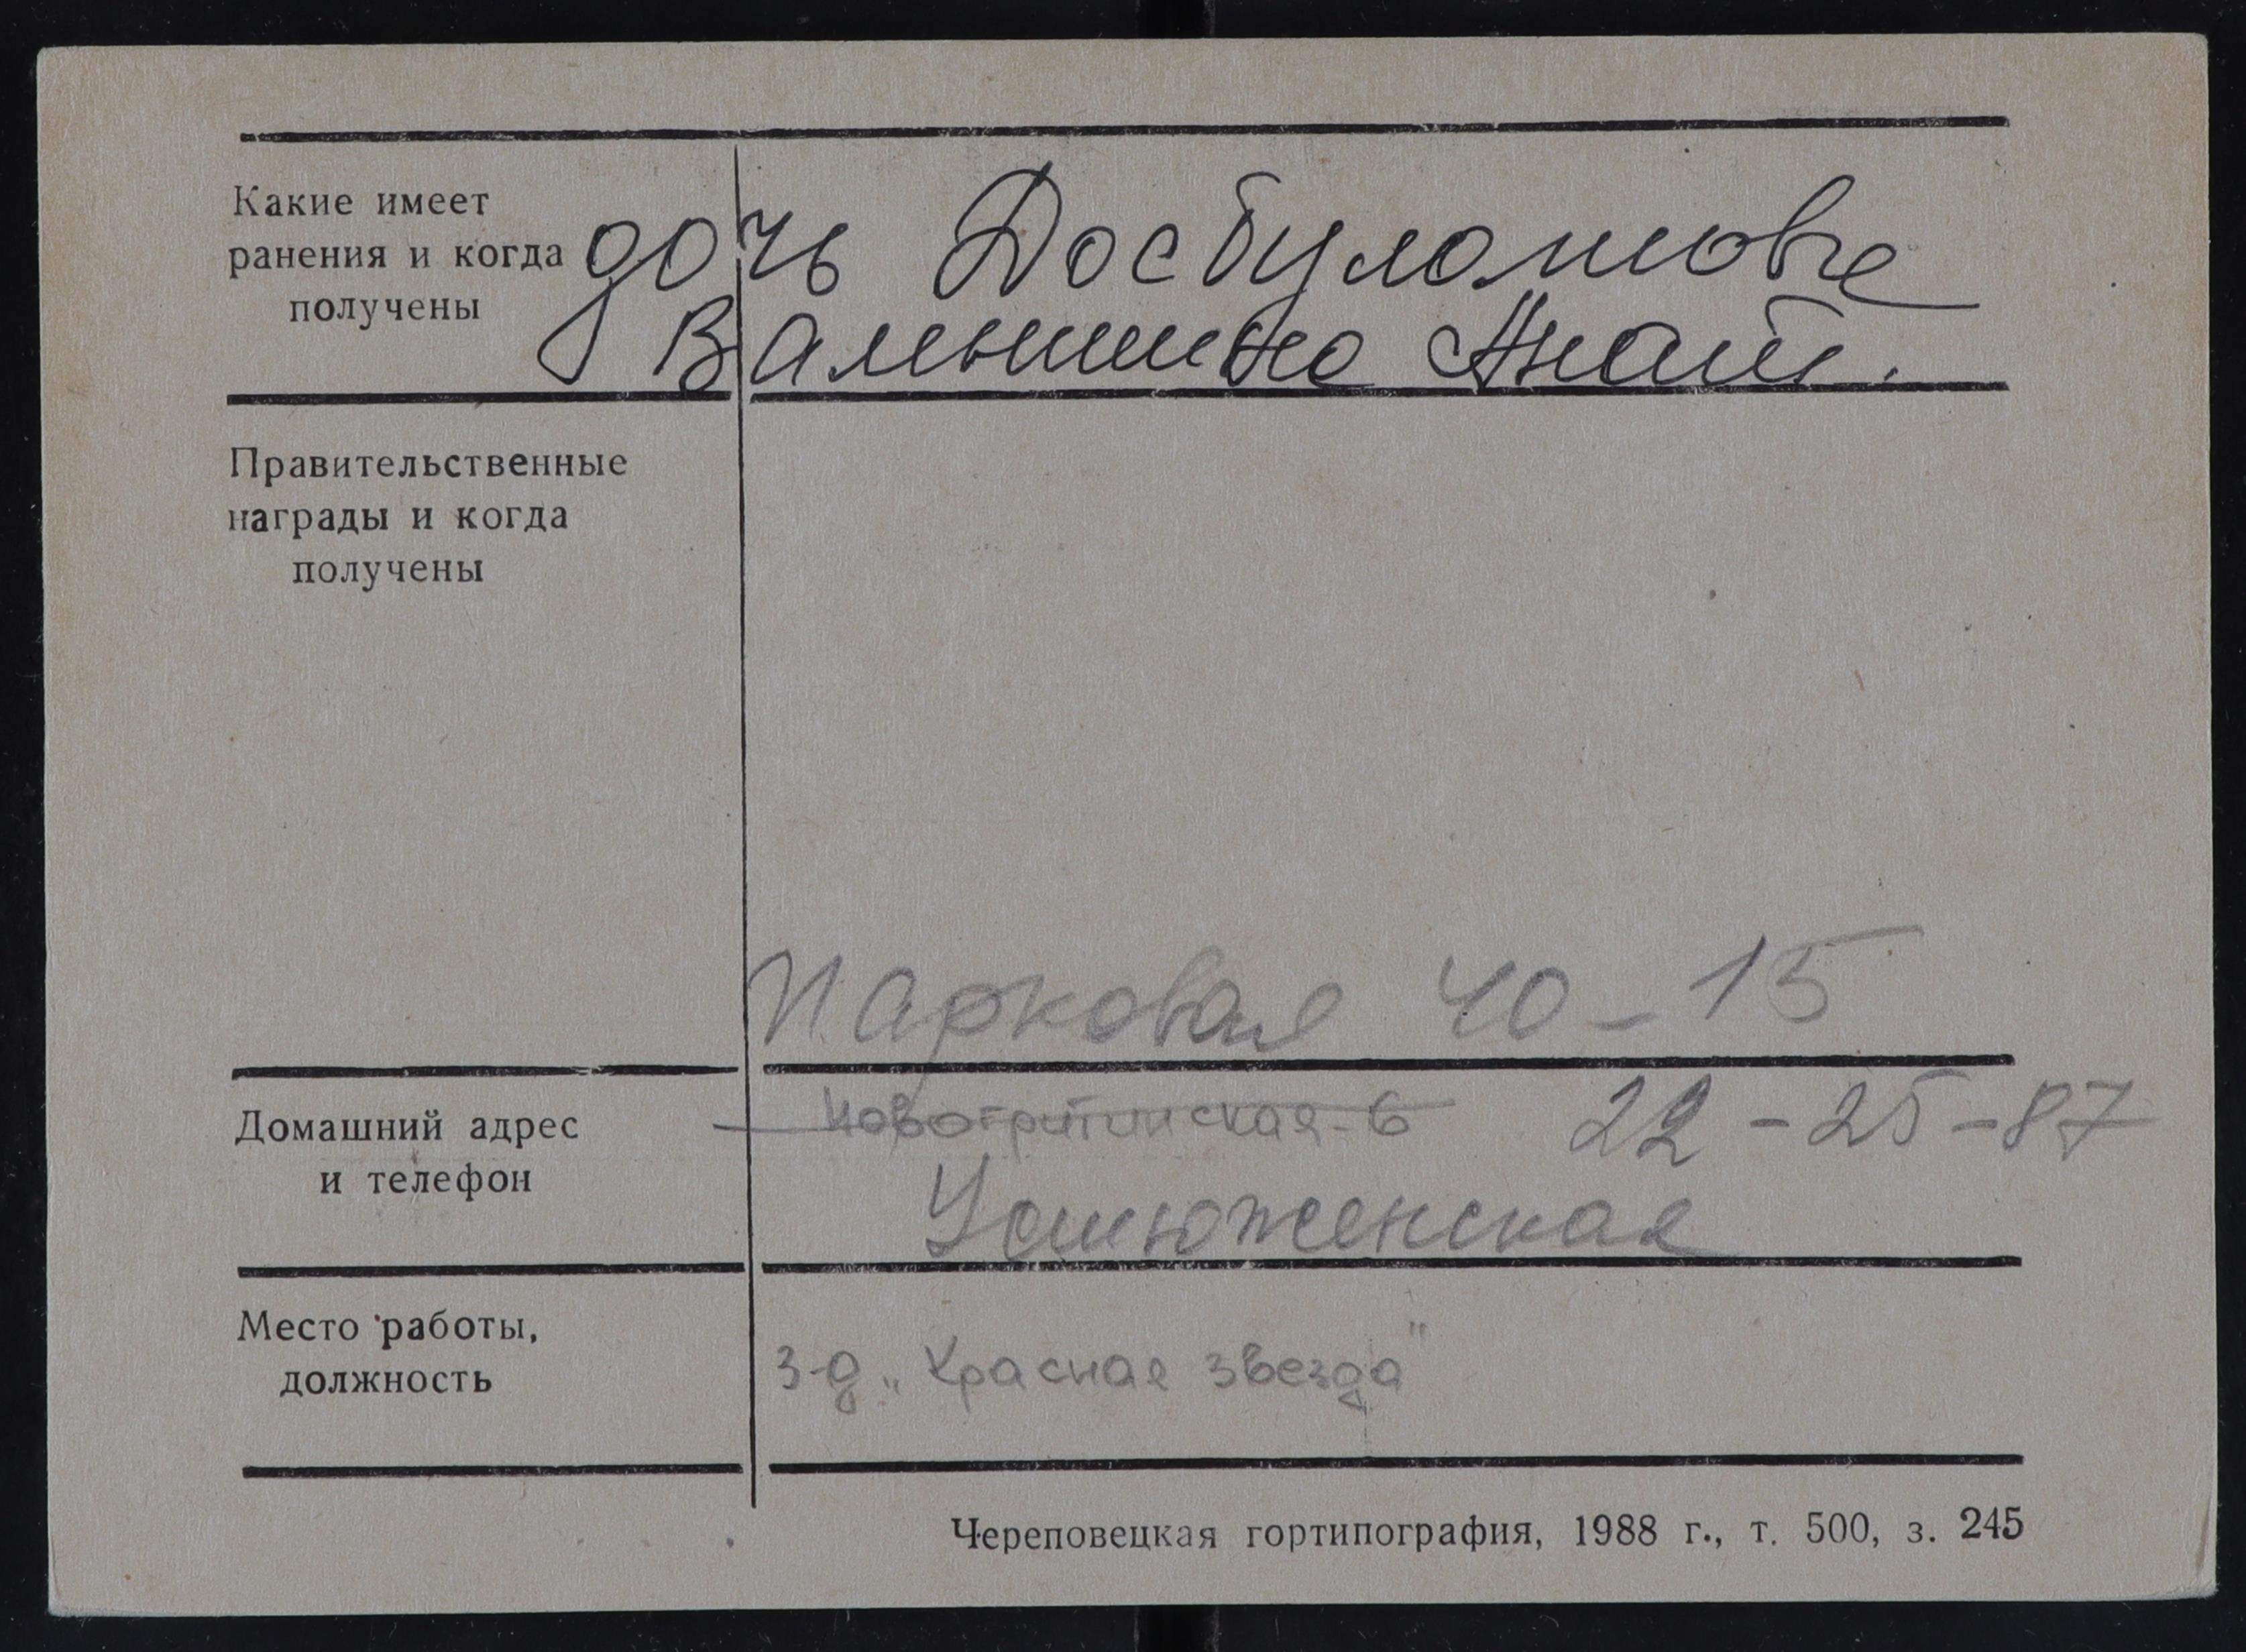 Какие имеет
ранения и когда
получены
дочь Досбулатова
Валентина Анат.
Правительственные
награды и когда
получены
Парковая 40-15
Домашний адрес
и телефон
22-25-87
Устюженская
Место работы,
должность
з-д „Красная звезда"
Череповецкая гортипография, 1988 г., т. 500, з. 245